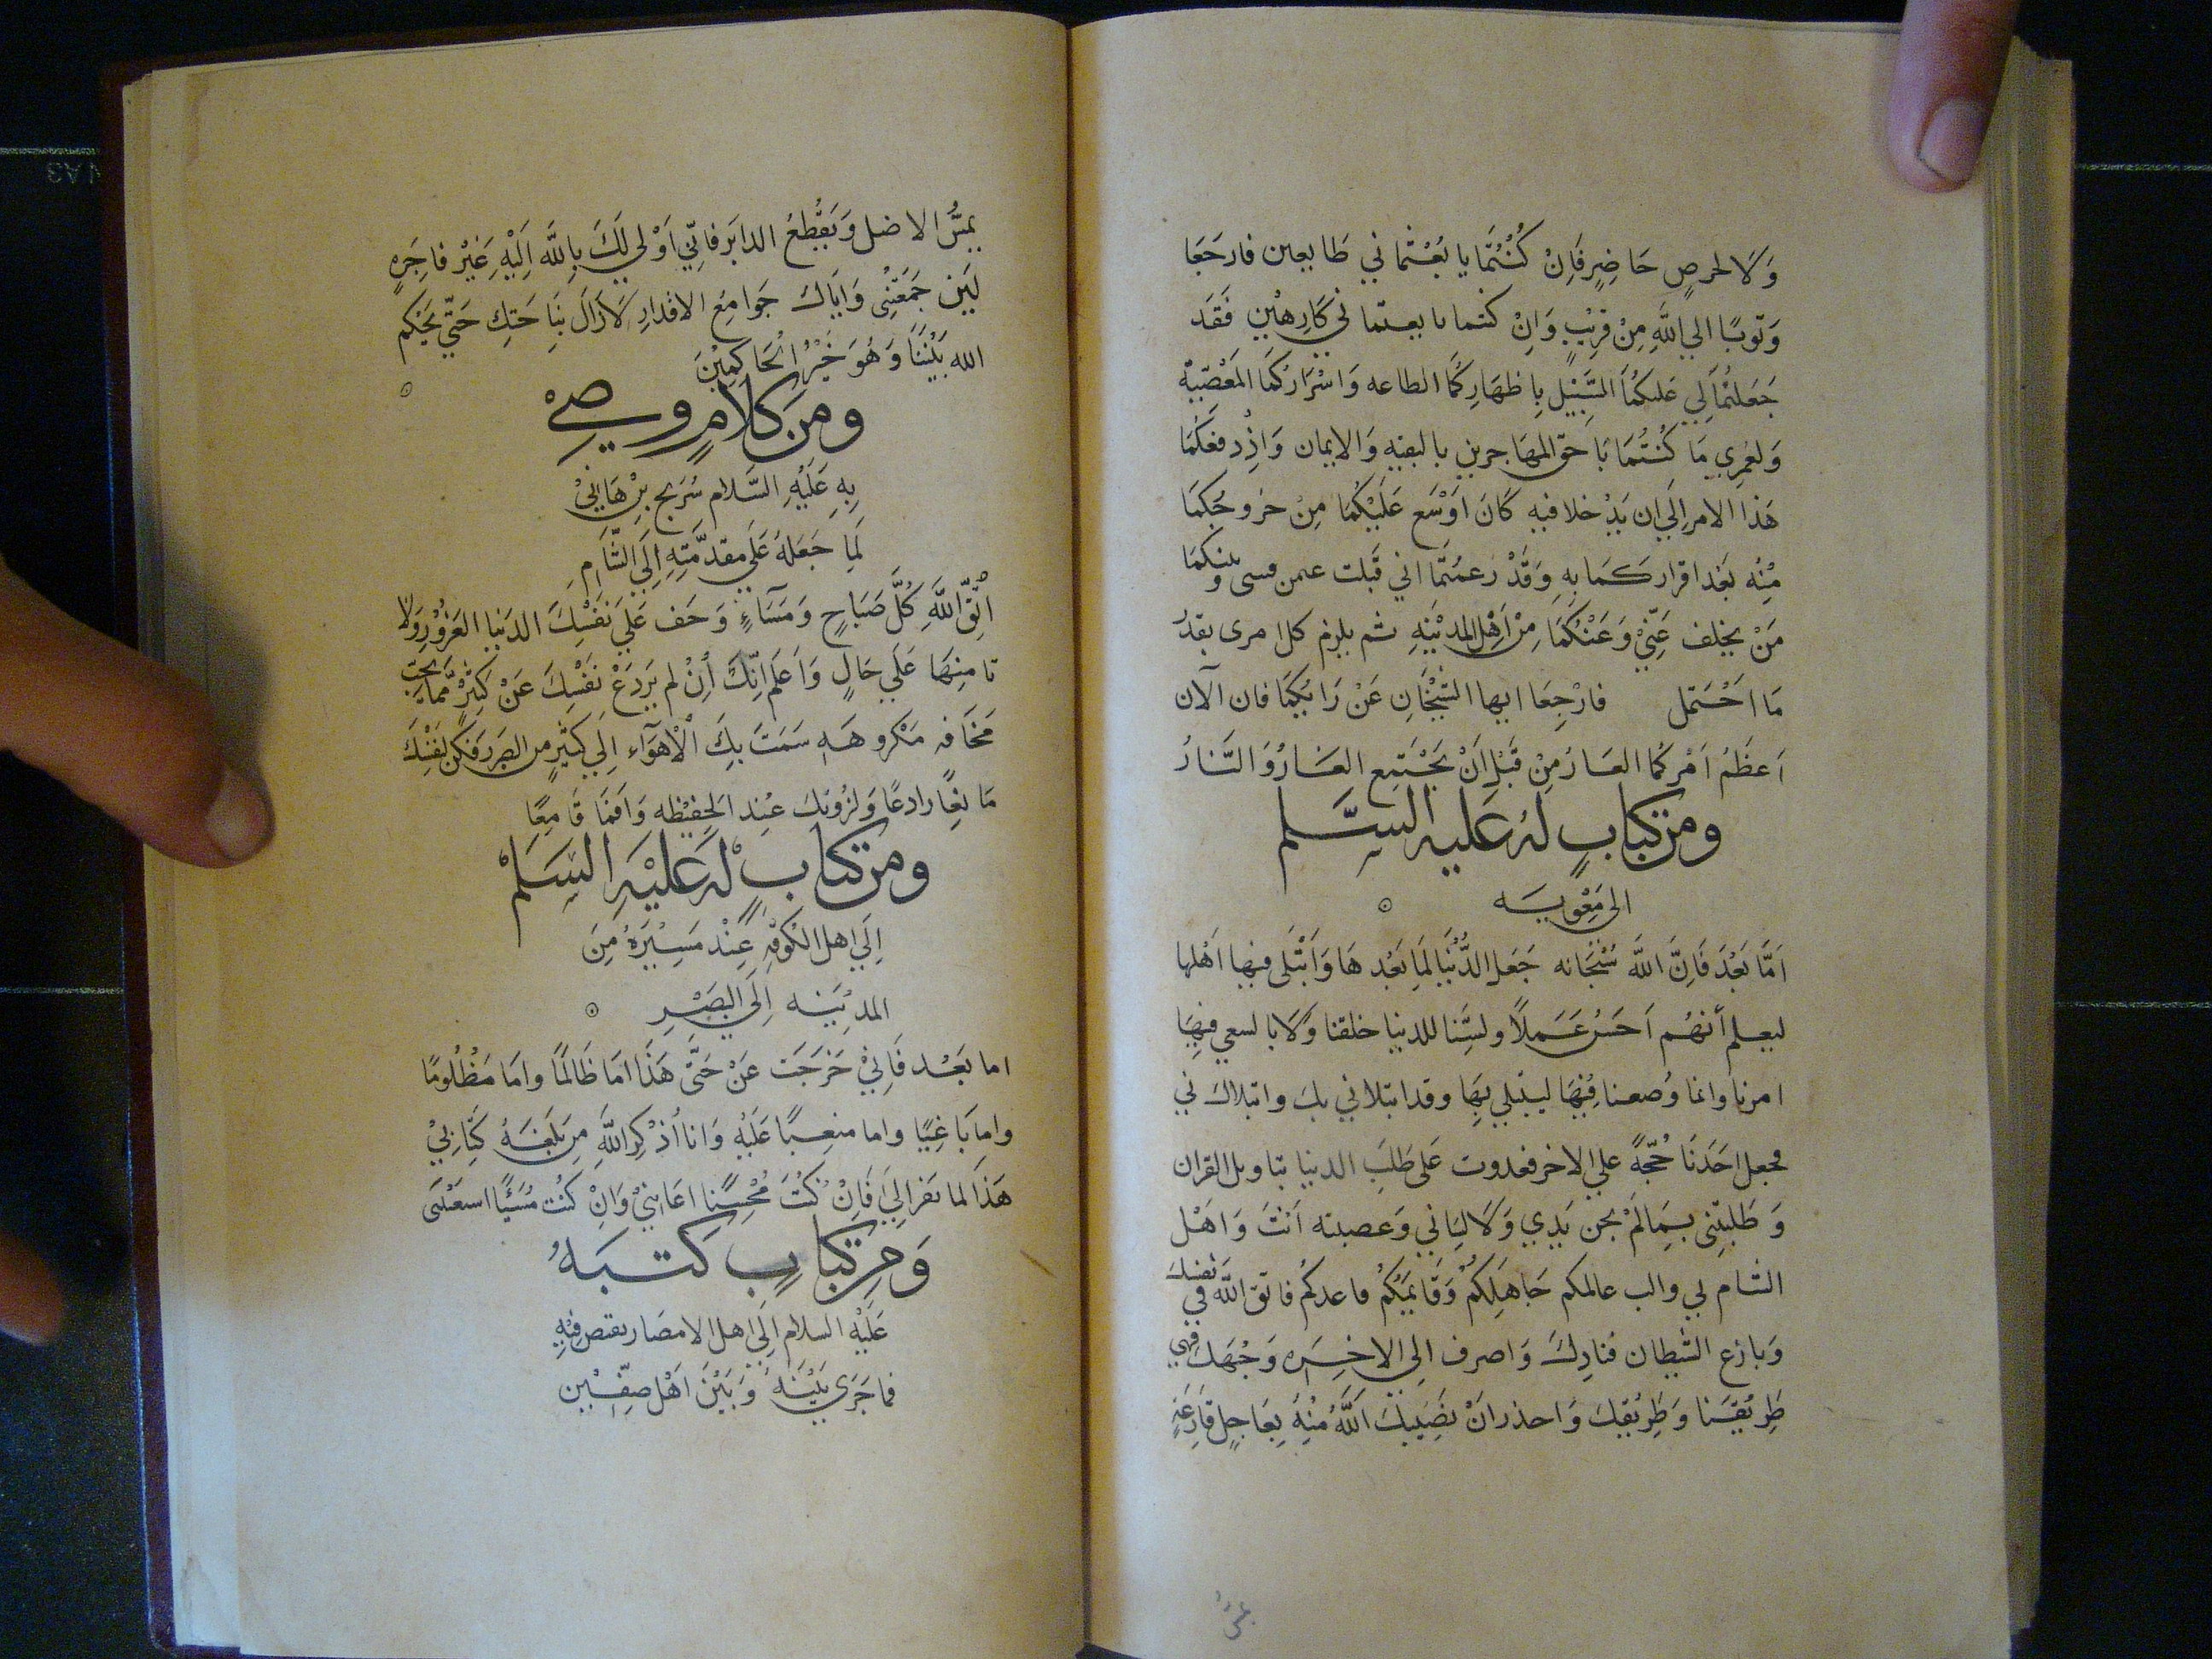 وَلَا لحرصٍ حَاضِرٍ فَاِنْ كُنْتُمَا بايَعْتُمَاني طَايعين فارجَعَا
وَتوبَا الي اللهِ مِنْ قريْبٍ وَاِنْ كنتما بايعتماني كَارِهيْنِ فَقَد
جَعَلتُمَا لِي عَليكُمَا السَّبِيْل بِاِظهَارِكُمَا الطاعه وَاسْرَارُكمَا المَعْصِيَة
وَلعُمْرِي مَا كُنْتُمَا بَاحَقّ المهَاجرينِ بالتقيه وَالايمان وَاِذْ دفعكمَا
هَذا الامر اِلَي ان يَدْخلافيه كَانَ اَوْسَع عَلَيْكُمَا مِنْ خرُوجُكمَا
مِنْه بَعْد اقراركَمَا بهِ وَقَدْ زعمتُمَا اني قَتَلت عمن فسى وبينكمَا
مَنْ يخلف عَنِّيْ وَعَنْكُمَا مِنْ اَهْلِ المديْنَهِ ثم يلزم كل امرى بقدْر
مَا احْتَمَل فارْجِعَا ايها الشيْخَانِ عَنْ رَايكمَا فان الآن
اَعظَمُ اَمْركمُا العَارُ مِنْ قَبْلِ اَنْ يَجْتَمِع العَارُ وَالنَّارُ
ومن كتابٍ لهُ عَليه السلم
الى مَعْويه
اَمَّا بَعْدَ فَاِنَّ اللهَ سُبْحَانه جَعَل الدُّنْيَا لمَا بَعْد هَا وَابْتَلَى فيها اَهْلها
ليعلم اَيّهُم اَحَسَنُ عَمَلاً ولسْنَا للدنيا خلقنا وَلَا بالسعي فيهَا
امرنا وَانما وُضعنا فِيْهَا ليبْتلي بهَا وقد ابتلاني بك وابتلاك ني
فجعل احَدنَا حُجّةً علي الاخر فعدوت عَلى طَلَبِ الدنيا بتاويل القران
وَطَلبتِني بِمَا لَمْ يجن يَدِي وَلَا لِسَاني وَعصبته اَنْتَ وَاهَْل
الشام بي والب عالمكم جَاهلكُم وَقَايمَكُمْ قاعدكُم فاتق اللهَ في نفسك
وَنازع الشيطان قيادِكَ وَاصرف الِى الاخِرَه وَجْهك فهي
طِريْقَنا وَطِريْقك وَاحذر انْ يصَيبك اللهُ مْنِهُ بِعَاجِلٍ قارِعَهِ
يمسُّ الاصل وَتَقْطعُ الدابَر فاِنّي اوْلي لكَ بِاللهِ اَلِيَّهِ غَيْرَ فاجِرَهٍ
لئِن جمَعَتْنِي وَايَاكَ جَوامِعَ الاقدارِ لَا زَالَ بِبَاحَتكِ حَتّي يَحْكم
الله بَيْننَا وَهُوَ خَيْرُ الْحَاكِمِيْنَ
ومن كَلامٍ وصي
بِهِ عَلَيْهِ السَّلام شرَيح بنِ هَانِيْ
لمَا جَعَلهُ عَلَي مقدّمَتِهِ اِلَي الشَّام
اتَّقِ اللهَ كُلَّ صَبَاحٍ وَمَسَاءٍ وَخَف عَلَي نَفْسِكَ الدنيا الغرُوْر وَلا
تا منهَا عَلَي حَالٍ وَاعلم انّك اِنْ لم تَردَعْ نَفْسِكَ عَنْ كثِيْرٍ ممّا يحِب
مَخَافه مَكروهَهِ سَمَتَ بكِ الْاهوَآءِ اِلَي كثيْرٍ من الضرَر فكن لنفْسِكَ
مَانِعًا رادعًا وَلنزوتك عِند الحِفيْظه وَاقمًا قَامِعًا
ومن كتابٍ لهُ عَليْهِ السَّلمْ
اِلَي اهل الكُوفَهِ عِنْد مَسِيْرَهُ مِنَ
المدِيْنه اِلَي البَصْرِ
اما بَعْد فَاِنيْ خرَجَت عَنْ حَتَّى هَذَا امَا ظَالمًا وامَا مَظُلُومًا
وامِا بَاغِيًا واما مبغيًا عَلَيْه وَانا اُذْكِر اللهَ مِن بَلَغَهُ كتَابيْ
هَذَا لما نَفر اِلَيَ فَاِنْ كُنتُ مُحْسِنًا اعَانِنيْ وَاِنْ كنتُ مُسَيًا استَعْتَبَى
وَمِن كتابٍ كتبَهُ
عَلَيْه السلام اِلَي اهل الامصَار يقتص فِيْهِ
فما جَرَي بَيْنَهُ وَبَيْنَ اَهْل صِفِيْن